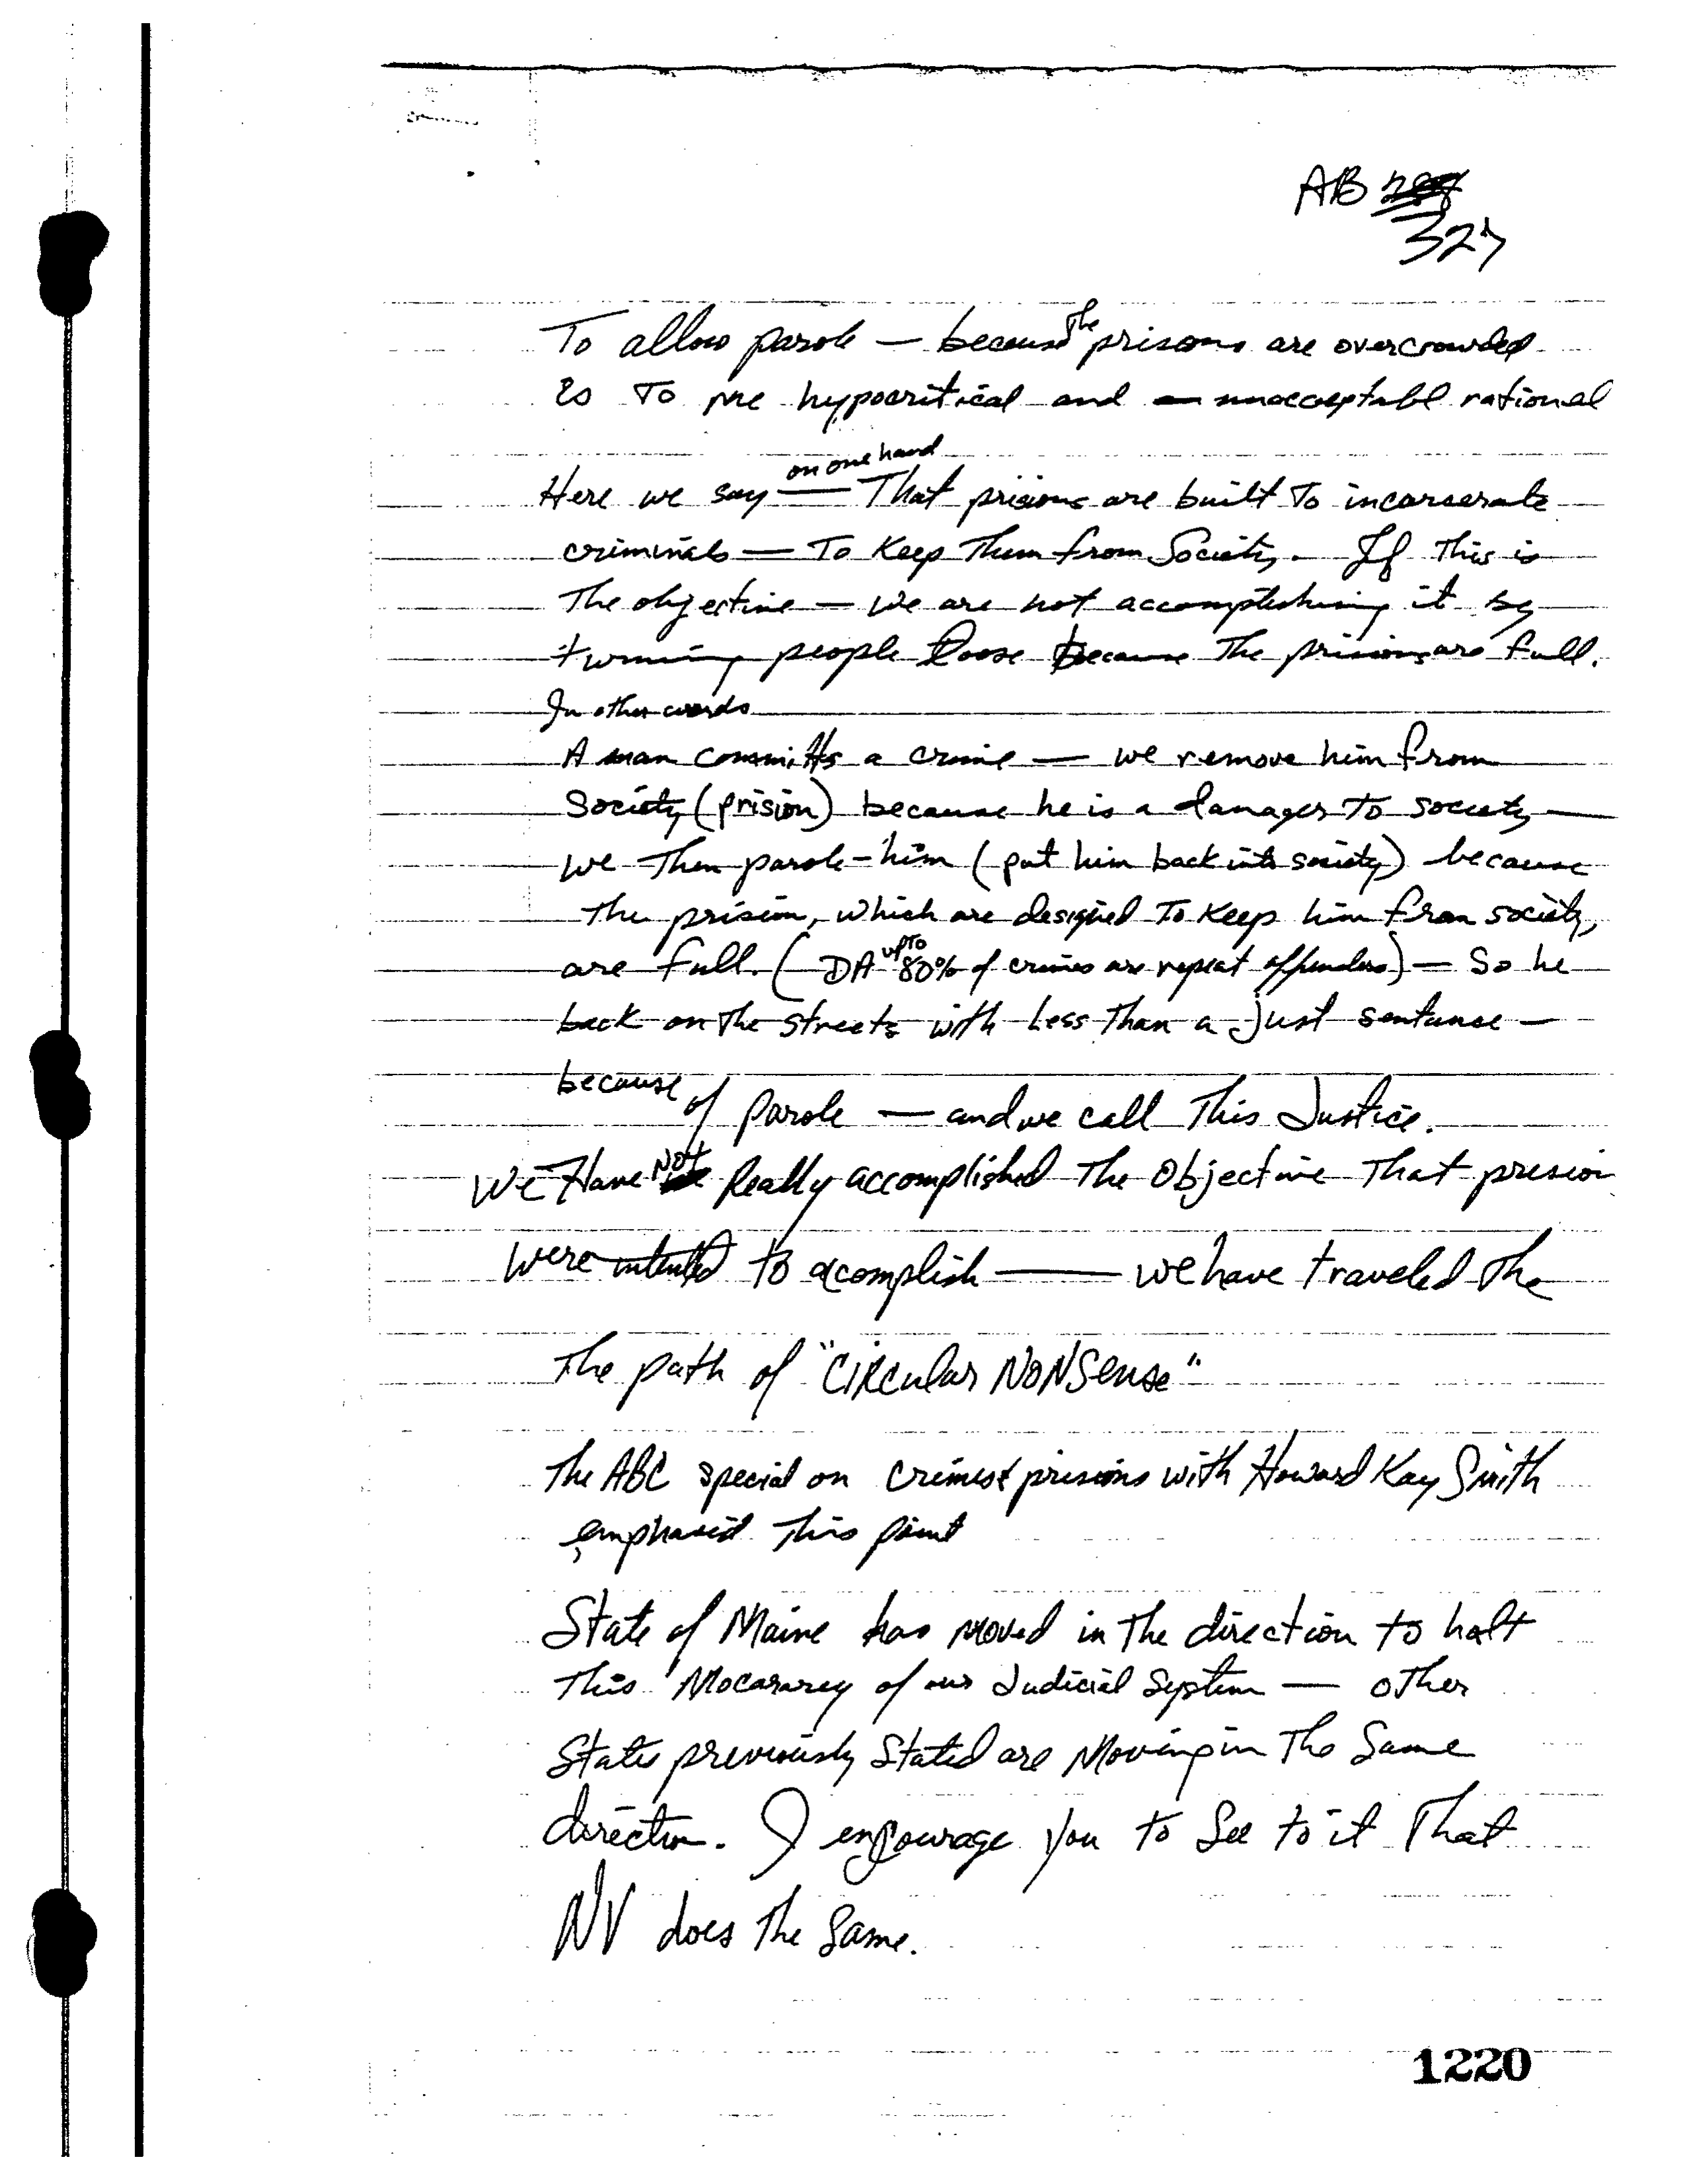 AB
327
To allow parole — because the prisons are overcrowded
is To me hypocritical and unacceptabl rational
Here we say on one hand — That prisions are built To incarserate
criminals — To Keep Them from Society. If This is
The objective — we are not accomplishing it by
turning people loose because The prisions are full.
In other words
A man committs a crime — we remove him from
Society (prision) because he is a danager To society —
we Then parole him (put him back into society) because
the prision, which are designed To Keep him from society,
are full. (DA up To 80% of crimes are repeat offenders) — So he
back on The streets with Less Than a just sentanse —
because of parole — and we call This Justice.
We Have Not Really accomplished The Objective That presion
were intented to acomplish —— we have traveled The
The path of "CIRcular NONSense"
The ABC special on crimes & prisions with Howard Kay Smith
emphasied This point
State of Maine has moved in The direction to halt
This Mocararey of our Judicial System — other
States previously Stated are Moving in The Same
direction. I encourage you to See to it That
NV does The Same.
1220